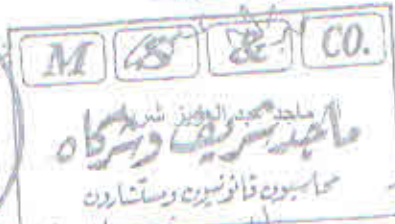 M S & CO.
ماجد عبد العزيز شريف
ماجد شريف وشركاه
محاسبون قانونيون ومستشارون